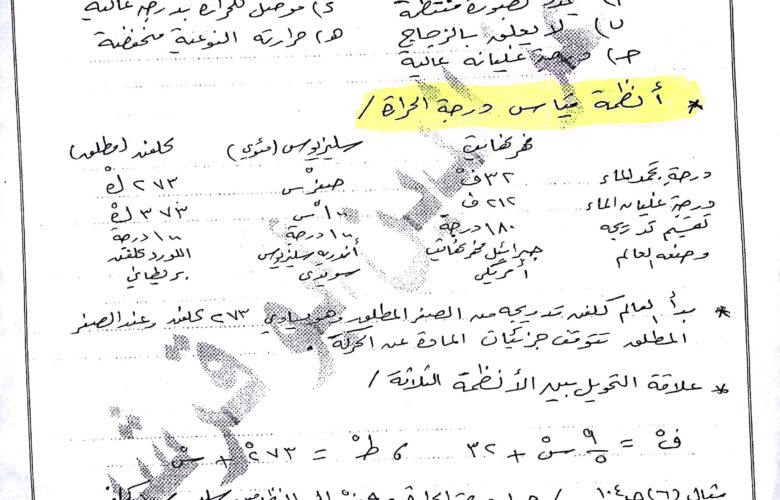 أ) يتمدد بصورة منتظمة د) موصل للحرارة بدرجة عالية
ب) لا يعلق بالزجاج هـ) حرارته النوعية منخفضة
جـ) درجة غليانه عالية
* أنظمة قياس درجة الحرارة /
فهرنهايت سليزيوس (مئوي) كلفن (مطلق)
درجة تجمد الماء ٣٢ فْ صفر سْ ٢٧٣ كْ
درجة غليان الماء ٢١٢ ف ١٠٠ سْ ٣٧٣ كْ
تقسيم تدريجه ١٨٠ درجة ١٠٠ درجة ١٠٠ درجة
وضعه العالم جبرائيل فهرنهايت أندريه سليزيوس اللورد كلفن
أمريكي سويدي بريطاني
* بدأ العالم كلفن تدريجه من الصفر المطلق وهو يساوي ٢٧٣ كلفن وعند الصفر
المطلق تتوقف جزئيات المادة عن الحركة .
* علاقة التحويل بين الأنظمة الثلاثة /
فْ = ٩/٥ سْ + ٣٢ ، طْ = ٢٧٣ + سْ
مثال (٦) ص ١٠٤ /